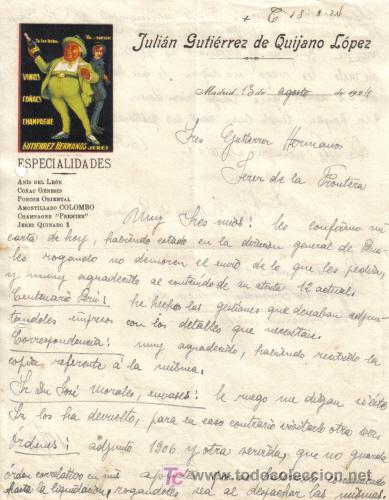 + C 18-8-24
Julián Gutiérrez de Quijano López
Madrid 13 de agosto de 1924
VINOS
COÑACS
CHAMPAGNE
GUTIERREZ HERMANOS JEREZ
ESPECIALIDADES
Anís del León
Coñac Génesis
Ponche Oriental
Amontillado COLOMBO
Champagne "Premier"
Jerez Quinado
Sres Gutierrez Hermanos
Jerez de la Frontera
Muy Sres mios: les confirmo mi
carta de hoy, habiendo estado en la dirección general de
rogando no demoren el envio de lo que les pedia,
y muy agradecido al contenido de su atenta 12 actual.
Centenario Perú: he hecho las gestiones que deseaban adjun-
tandoles impreso con los detalles que necesitan.
Correspondencia: muy agradecido, habiendo recibido la
copia referente á la misma.
Sr Dn José Morales, envases: le ruego me digan
Si los ha devuelto, para en caso contrario visitarle otra vez.
Ordenes: adjunto 1906 y otra servida, que no guarda
orden correlativo en mis
hasta la liquidación, rogandoles sea al despachar las mismas.
TC www.todocoleccion.net